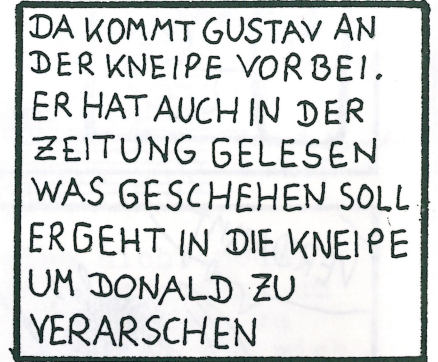 DA KOMMT GUSTAV AN
DER KNEIPE VORBEI.
ER HAT AUCH IN DER
ZEITUNG GELESEN
WAS GESCHEHEN SOLL
ER GEHT IN DIE KNEIPE
UM DONALD ZU
VERARSCHEN